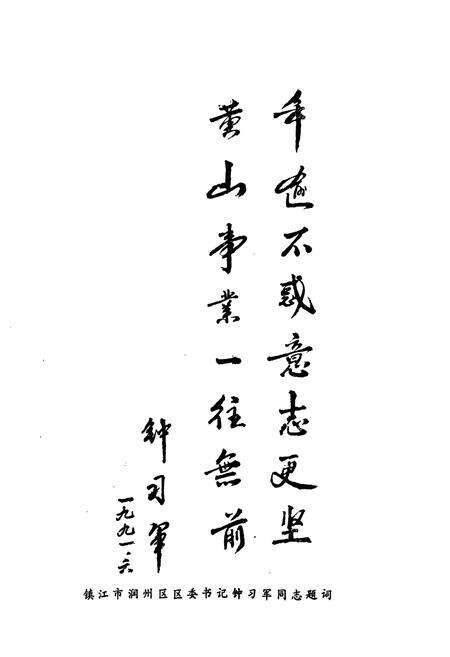 年逾不惑意志更坚
黄山事業一往無前
钟习军
一九九一.六
镇江市润州区区委书记钟习军同志题词